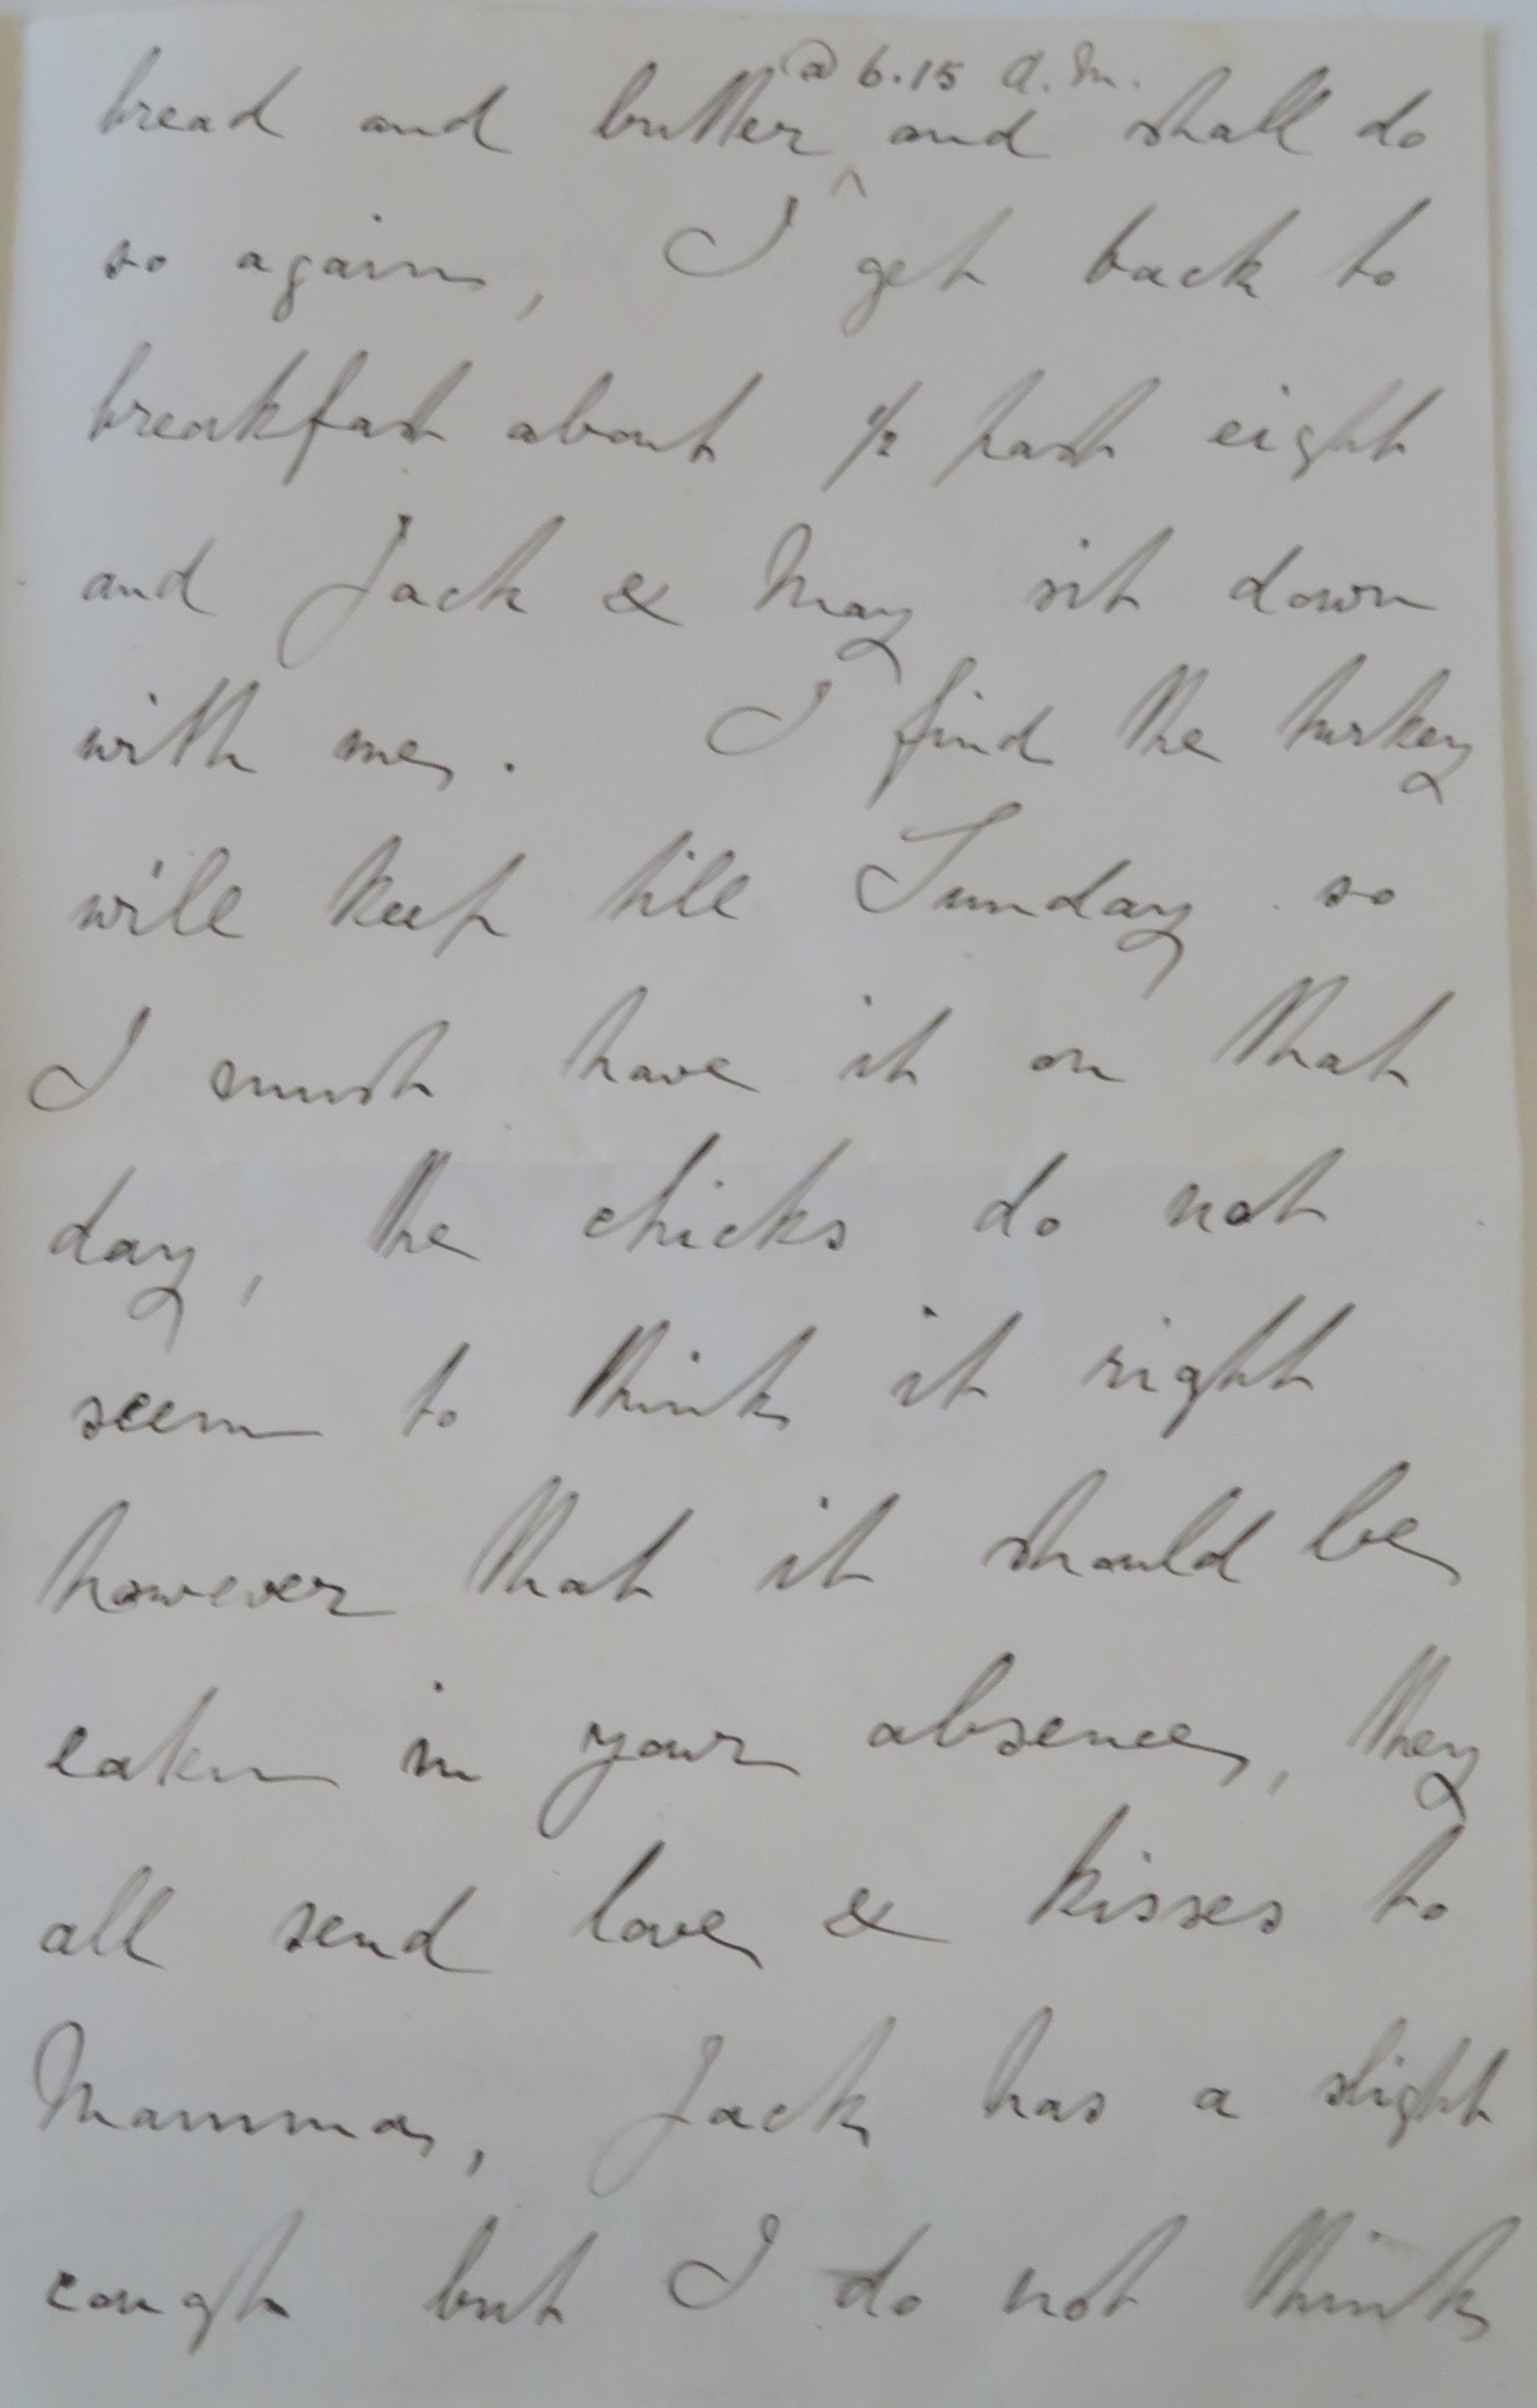 @ 6.15 a.m.
bread and butter ^ and shall do
so again, I get back to
breakfast about 1/2 past eight
and Jack & May sit down
with me. I find the turkey
will keep till Sunday so
I must have it on that
day, the chicks do not
seem to think it right
however that it should be
eaten in your absence, they
all send love & kisses to
Mamma, Jack has a slight
cough but I do not think